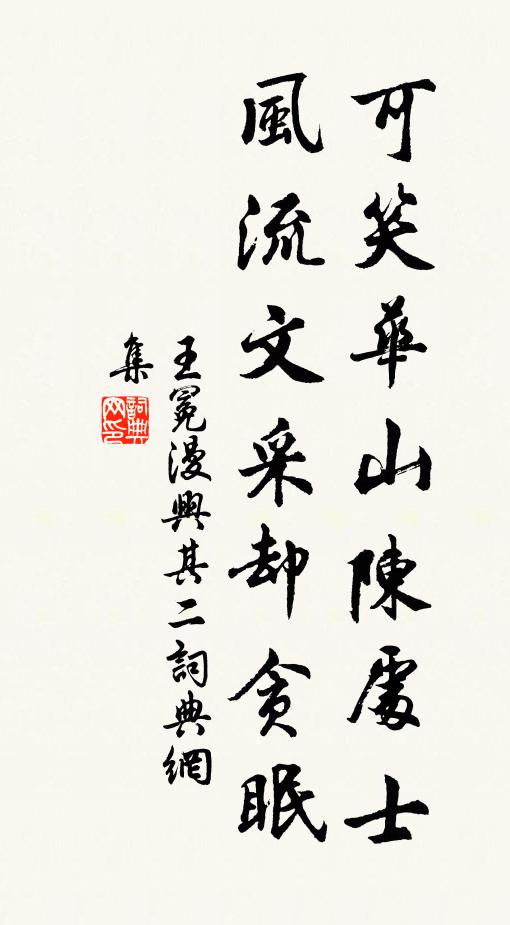 可笑華山陳處士
風流文采却貪眠
王冕漫興其二詞典網
集
詞典
网印